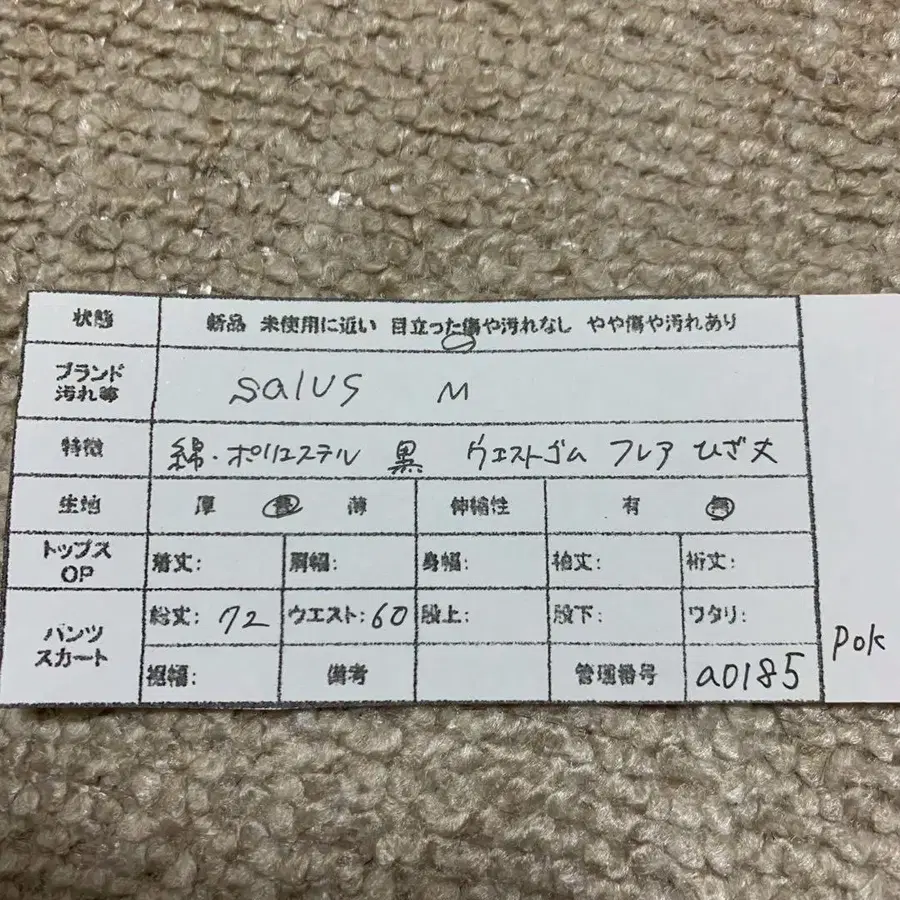 状態 新品 未使用に近い 目立った傷や汚れなし やや傷や汚れあり
ブランド
汚れ等 salus M
特徴 綿・ポリエステル 黒 ウエストゴム フレア ひざ丈
生地 厚 普 薄 伸縮性 有 無
トップス
OP 着丈: 肩幅: 身幅: 袖丈: 裄丈:
パンツ
スカート 総丈: 72 ウエスト: 60 股上: 股下: ワタリ:
裾幅: 備考 管理番号 a0185
pok